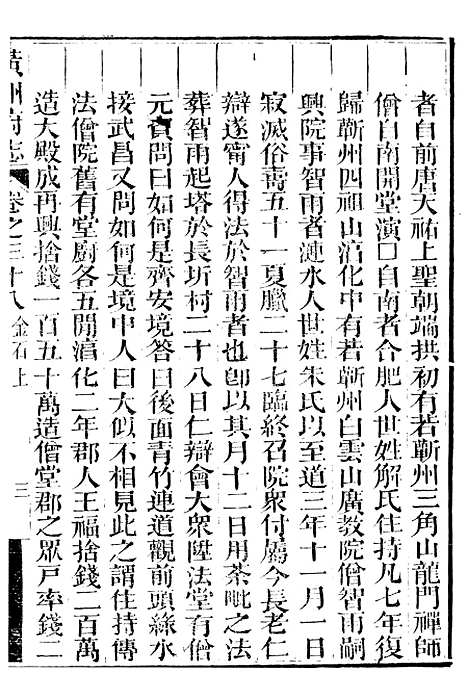 者自前唐天祐上聖朝端拱初有若蘄州三角山龍門禪師
僧自南開堂演口自南者合肥人世姓解氏住持凡七年復
歸蘄州四祖山淯化中有若蘄州白雲山廣教院僧智雨嗣
興院事智雨者漣水人世姓朱氏以至道三年十一月一日
寂滅俗壽五十一夏臘二十七臨終召院衆付屬今長老仁
辯遂甯人得法於智雨者也卽以其月十二日用茶毗之法
葬智雨起塔於長圻村二十八日仁辯會大衆陞法堂有僧
元賁問曰如何是齊安境答曰後面青竹連道觀前頭絲水
接武昌又問如何是境中人曰大似不相見此之謂住持傳
法僧院舊有堂廚各五閒淯化二年郡人王福捨錢二百萬
造大殿成再興捨錢一百五十萬造僧堂郡之眾戸率錢二
黃州府志
卷之三十八
金石上
三